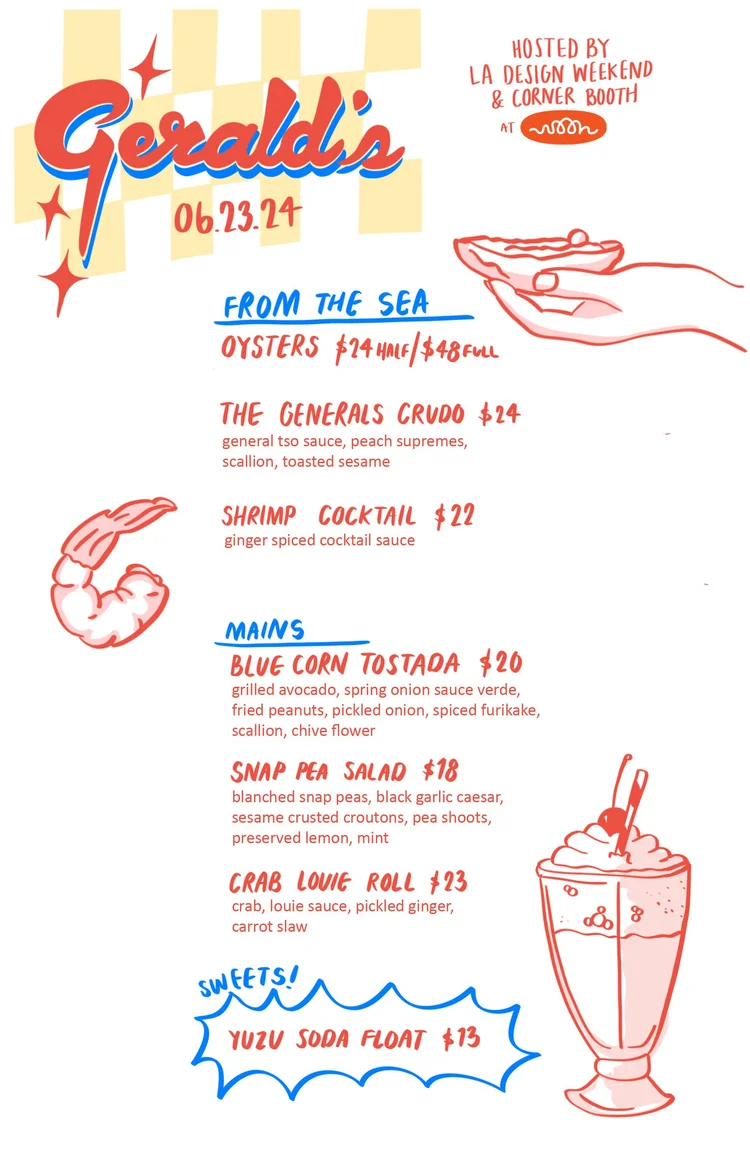 Gerald's
06.23.24
HOSTED BY
LA DESIGN WEEKEND
& CORNER BOOTH
AT
FROM THE SEA
OYSTERS $24 HALF/$48 FULL
THE GENERALS CRUDO $24
general tso sauce, peach supremes,
scallion, toasted sesame
SHRIMP COCKTAIL $22
ginger spiced cocktail sauce
MAINS
BLUE CORN TOSTADA $20
grilled avocado, spring onion sauce verde,
fried peanuts, pickled onion, spiced furikake,
scallion, chive flower
SNAP PEA SALAD $18
blanched snap peas, black garlic caesar,
sesame crusted croutons, pea shoots,
preserved lemon, mint
CRAB LOUIE ROLL $23
crab, louie sauce, pickled ginger,
carrot slaw
SWEETS!
YUZU SODA FLOAT $13